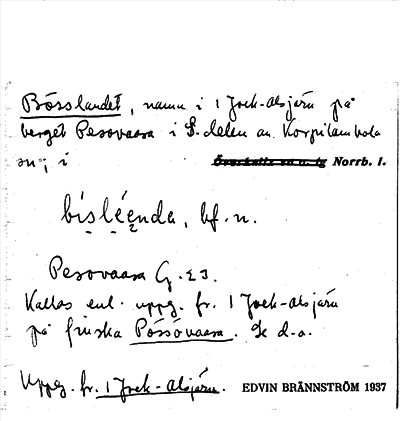 Bösslandet, namn i 1 Jock-alsjärn på
berget Pesovaara i S. delen av Korpilombolo
sn; i Överkalix sn o. tg Norrb. l.
bi̤sle̤ęnda, bf. n.
Pesovaara G. 23.
Kallas enl. uppg. fr. 1 Jock-alsjärn
på finska Pössövaara. Se d.o.
Uppg. fr. 1 Jock-alsjärn. EDVIN BRÄNNSTRÖM 1937